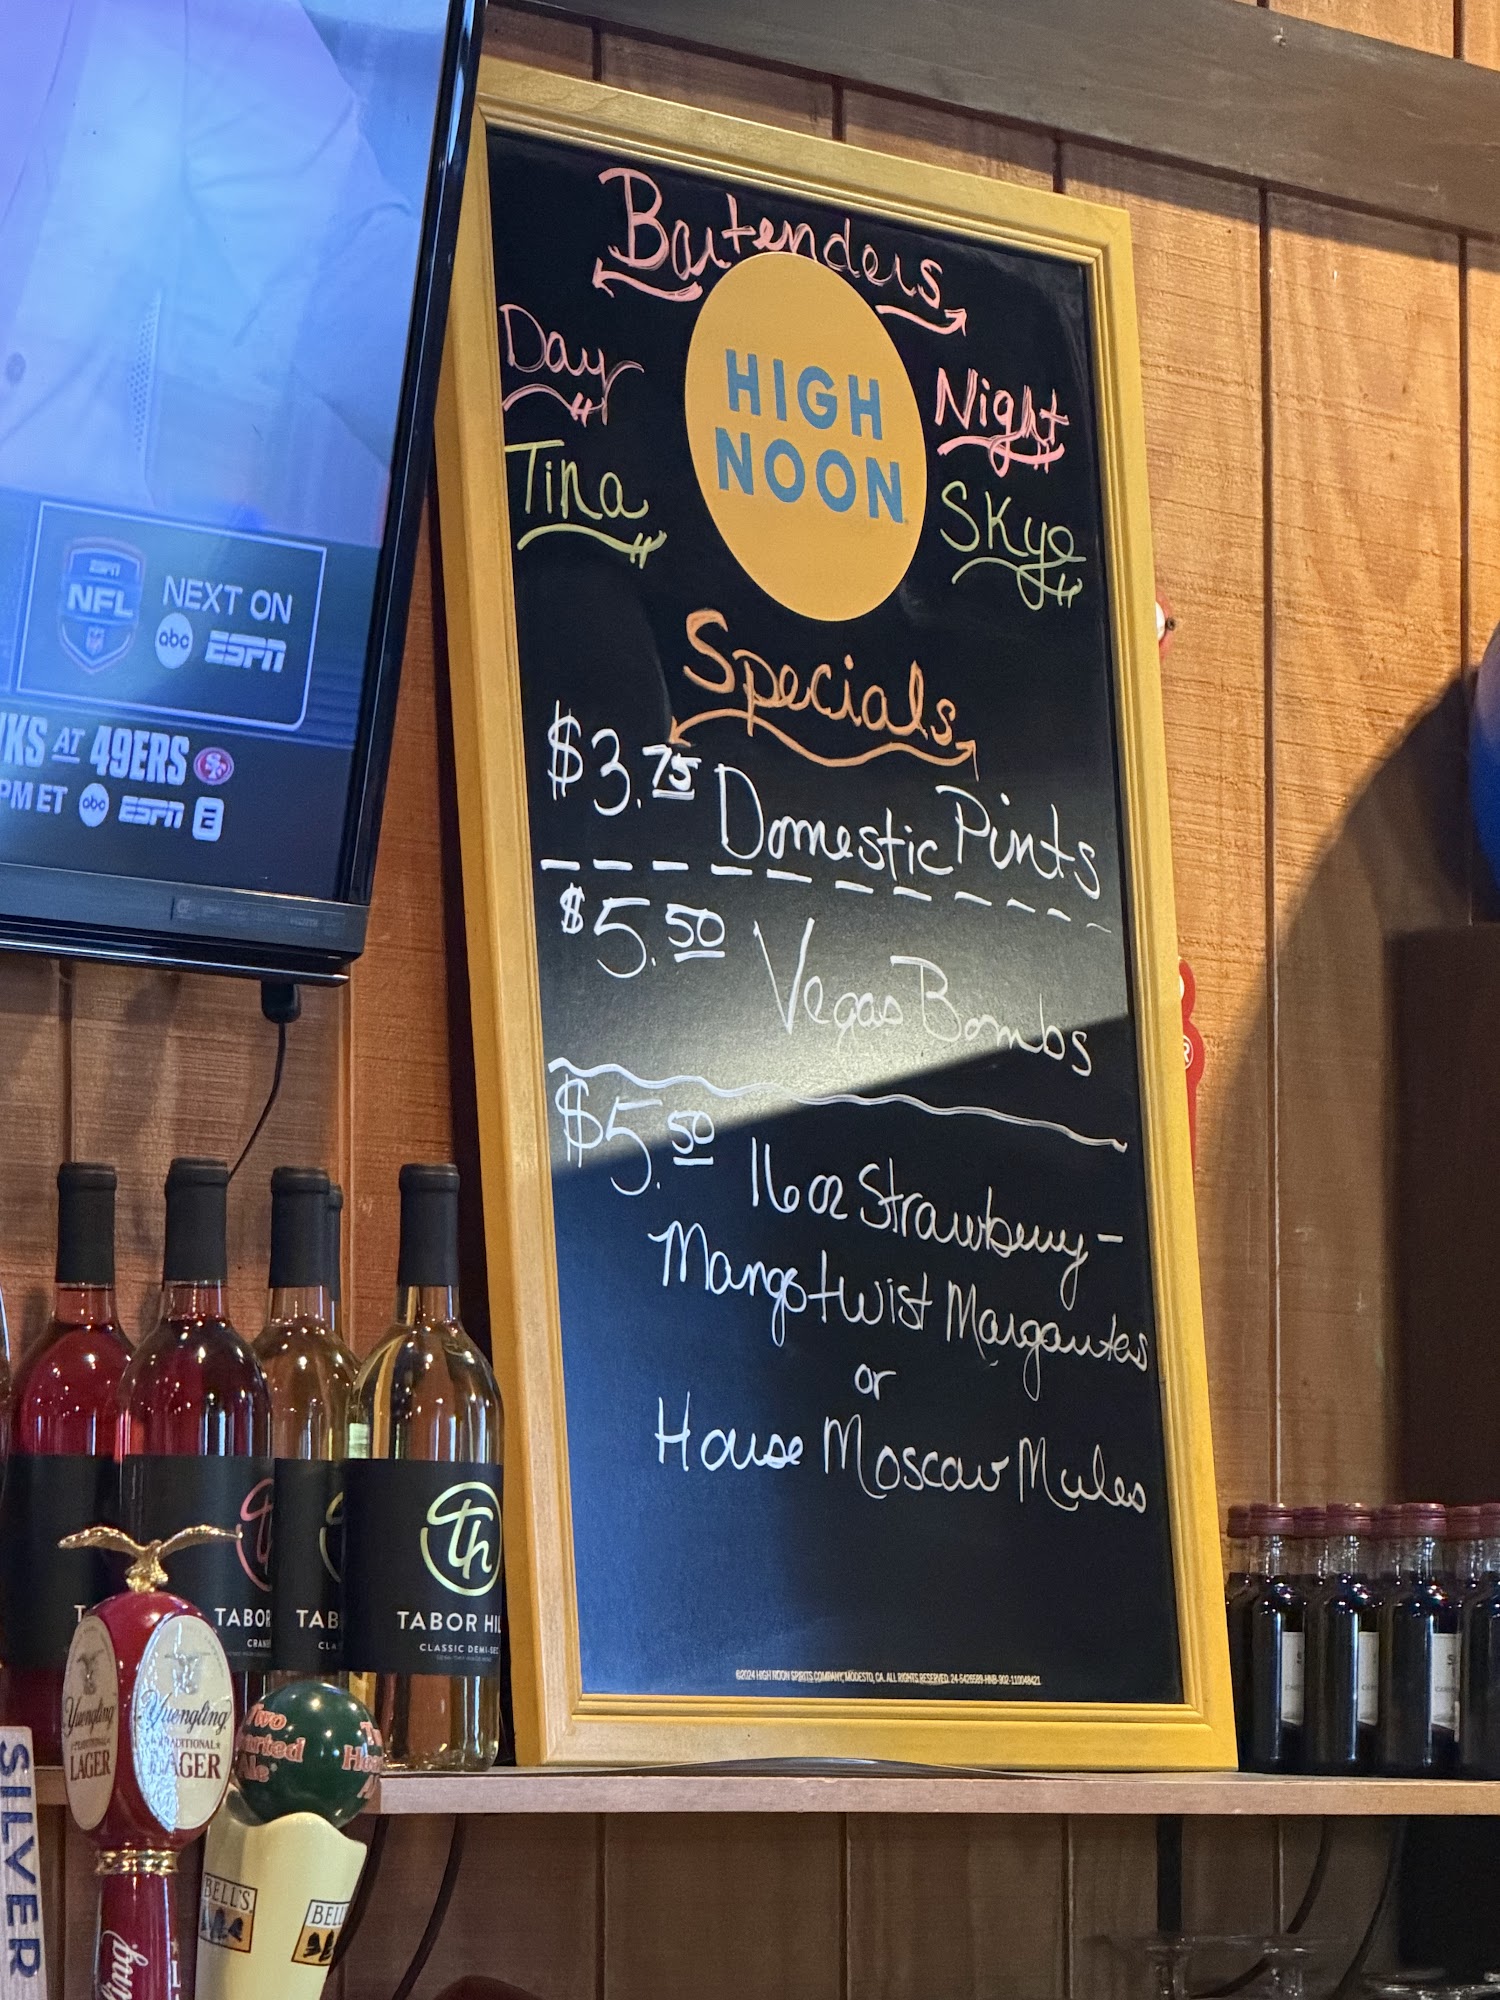 Bartenders
Day
Night
Tina
Skye
HIGH
NOON
Specials
$3.75 Domestic Pints
$5.50 Vegas Bombs
$5.50 16oz Strawberry-
Mango twist Margarites
or
House Moscow Mules
©2024 HIGH NOON SPIRITS COMPANY, MODESTO, CA. ALL RIGHTS RESERVED.
ESPN
NFL
NEXT ON
abc ESPN
AT 49ERS
PM ET abc ESPN 2
TABOR
TABOR HIL
CLASSIC DEMI-SEC
Yuengling
TRADITIONAL
LAGER
Yuengling
TRADITIONAL
LAGER
Two
Ale
BELL'S
BELL
SILVER